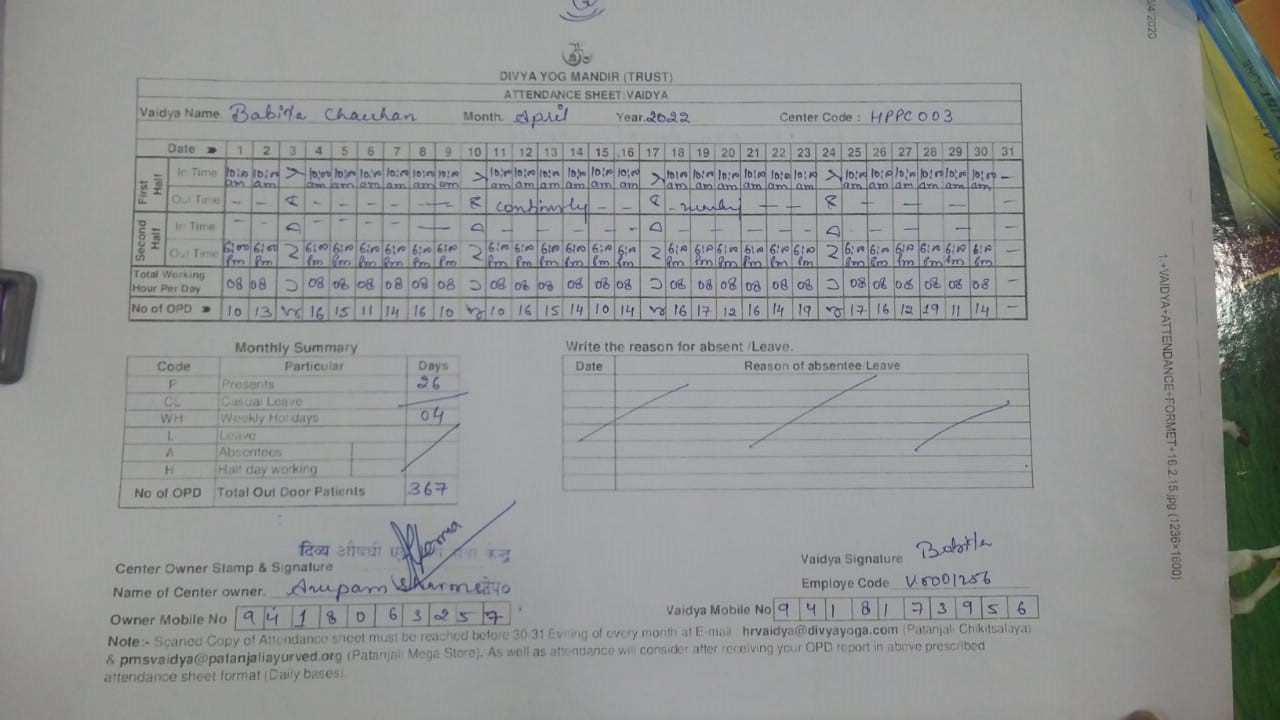 DIVYA YOG MANDIR (TRUST)
ATTENDANCE SHEET:VAIDYA
Vaidya Name. Babita Chauhan Month. April Year.2022 Center Code : HPPC003
Date 1 2 3 4 5 6 7 8 9 10 11 12 13 14 15 16 17 18 19 20 21 22 23 24 25 26 27 28 29 30 31
First Half In Time 10:00 am 10:00 am 10:00 am 10:00 am 10:00 am 10:00 am 10:00 am 10:00 am 10:00 am 10:00 am 10:00 am 10:00 am 10:00 am 10:00 am 10:00 am 10:00 am 10:00 am 10:00 am 10:00 am 10:00 am 10:00 am 10:00 am 10:00 am 10:00 am 10:00 am 10:00 am –
Out Time
Second Half In Time
Out Time 6:00 Pm 6:00 Pm 6:00 Pm 6:00 Pm 6:00 Pm 6:00 Pm 6:00 Pm 6:00 Pm 6:00 Pm 6:00 Pm 6:00 Pm 6:00 Pm 6:00 Pm 6:00 Pm 6:00 Pm 6:00 Pm 6:00 Pm 6:00 Pm 6:00 Pm 6:00 Pm 6:00 Pm 6:00 Pm 6:00 Pm 6:00 Pm 6:00 Pm 6:00 Pm –
Total Working Hour Per Day 08 08 08 08 08 08 08 08 08 08 08 08 08 08 08 08 08 08 08 08 08 08 08 08 08 08 –
No of OPD 10 13 16 15 11 14 16 10 10 16 15 14 10 14 16 17 12 16 14 19 17 16 12 19 11 14 –
Monthly Summary
Code Particular Days
P Presents 26
CL Casual Leave
WH Weekly Holidays 04
L Leave
A Absentees
H Half day working
No of OPD Total Out Door Patients 367
Write the reason for absent /Leave.
Date Reason of absentee/Leave
दिव्य औषधी केन्द्र
Center Owner Stamp & Signature
Name of Center owner. Anupam Sharma
Owner Mobile No 9418063257
Vaidya Signature Babita
Employe Code V0001256
Vaidya Mobile No 9418173956
Note:- Scaned Copy of Attendance sheet must be reached before 30.31 Evning of every month at E-mail : hrvaidya@divyayoga.com (Patanjali Chikitsalaya)
& pmsvaidya@patanjaliayurved.org (Patanjali Mega Store). As well as attendance will consider after receiving your OPD report in above prescribed
attendance sheet format (Daily bases).
1.+VAIDYA+ATTENDANCE+FORMET+16.2.15.jpg (1236×1600)
4/2020